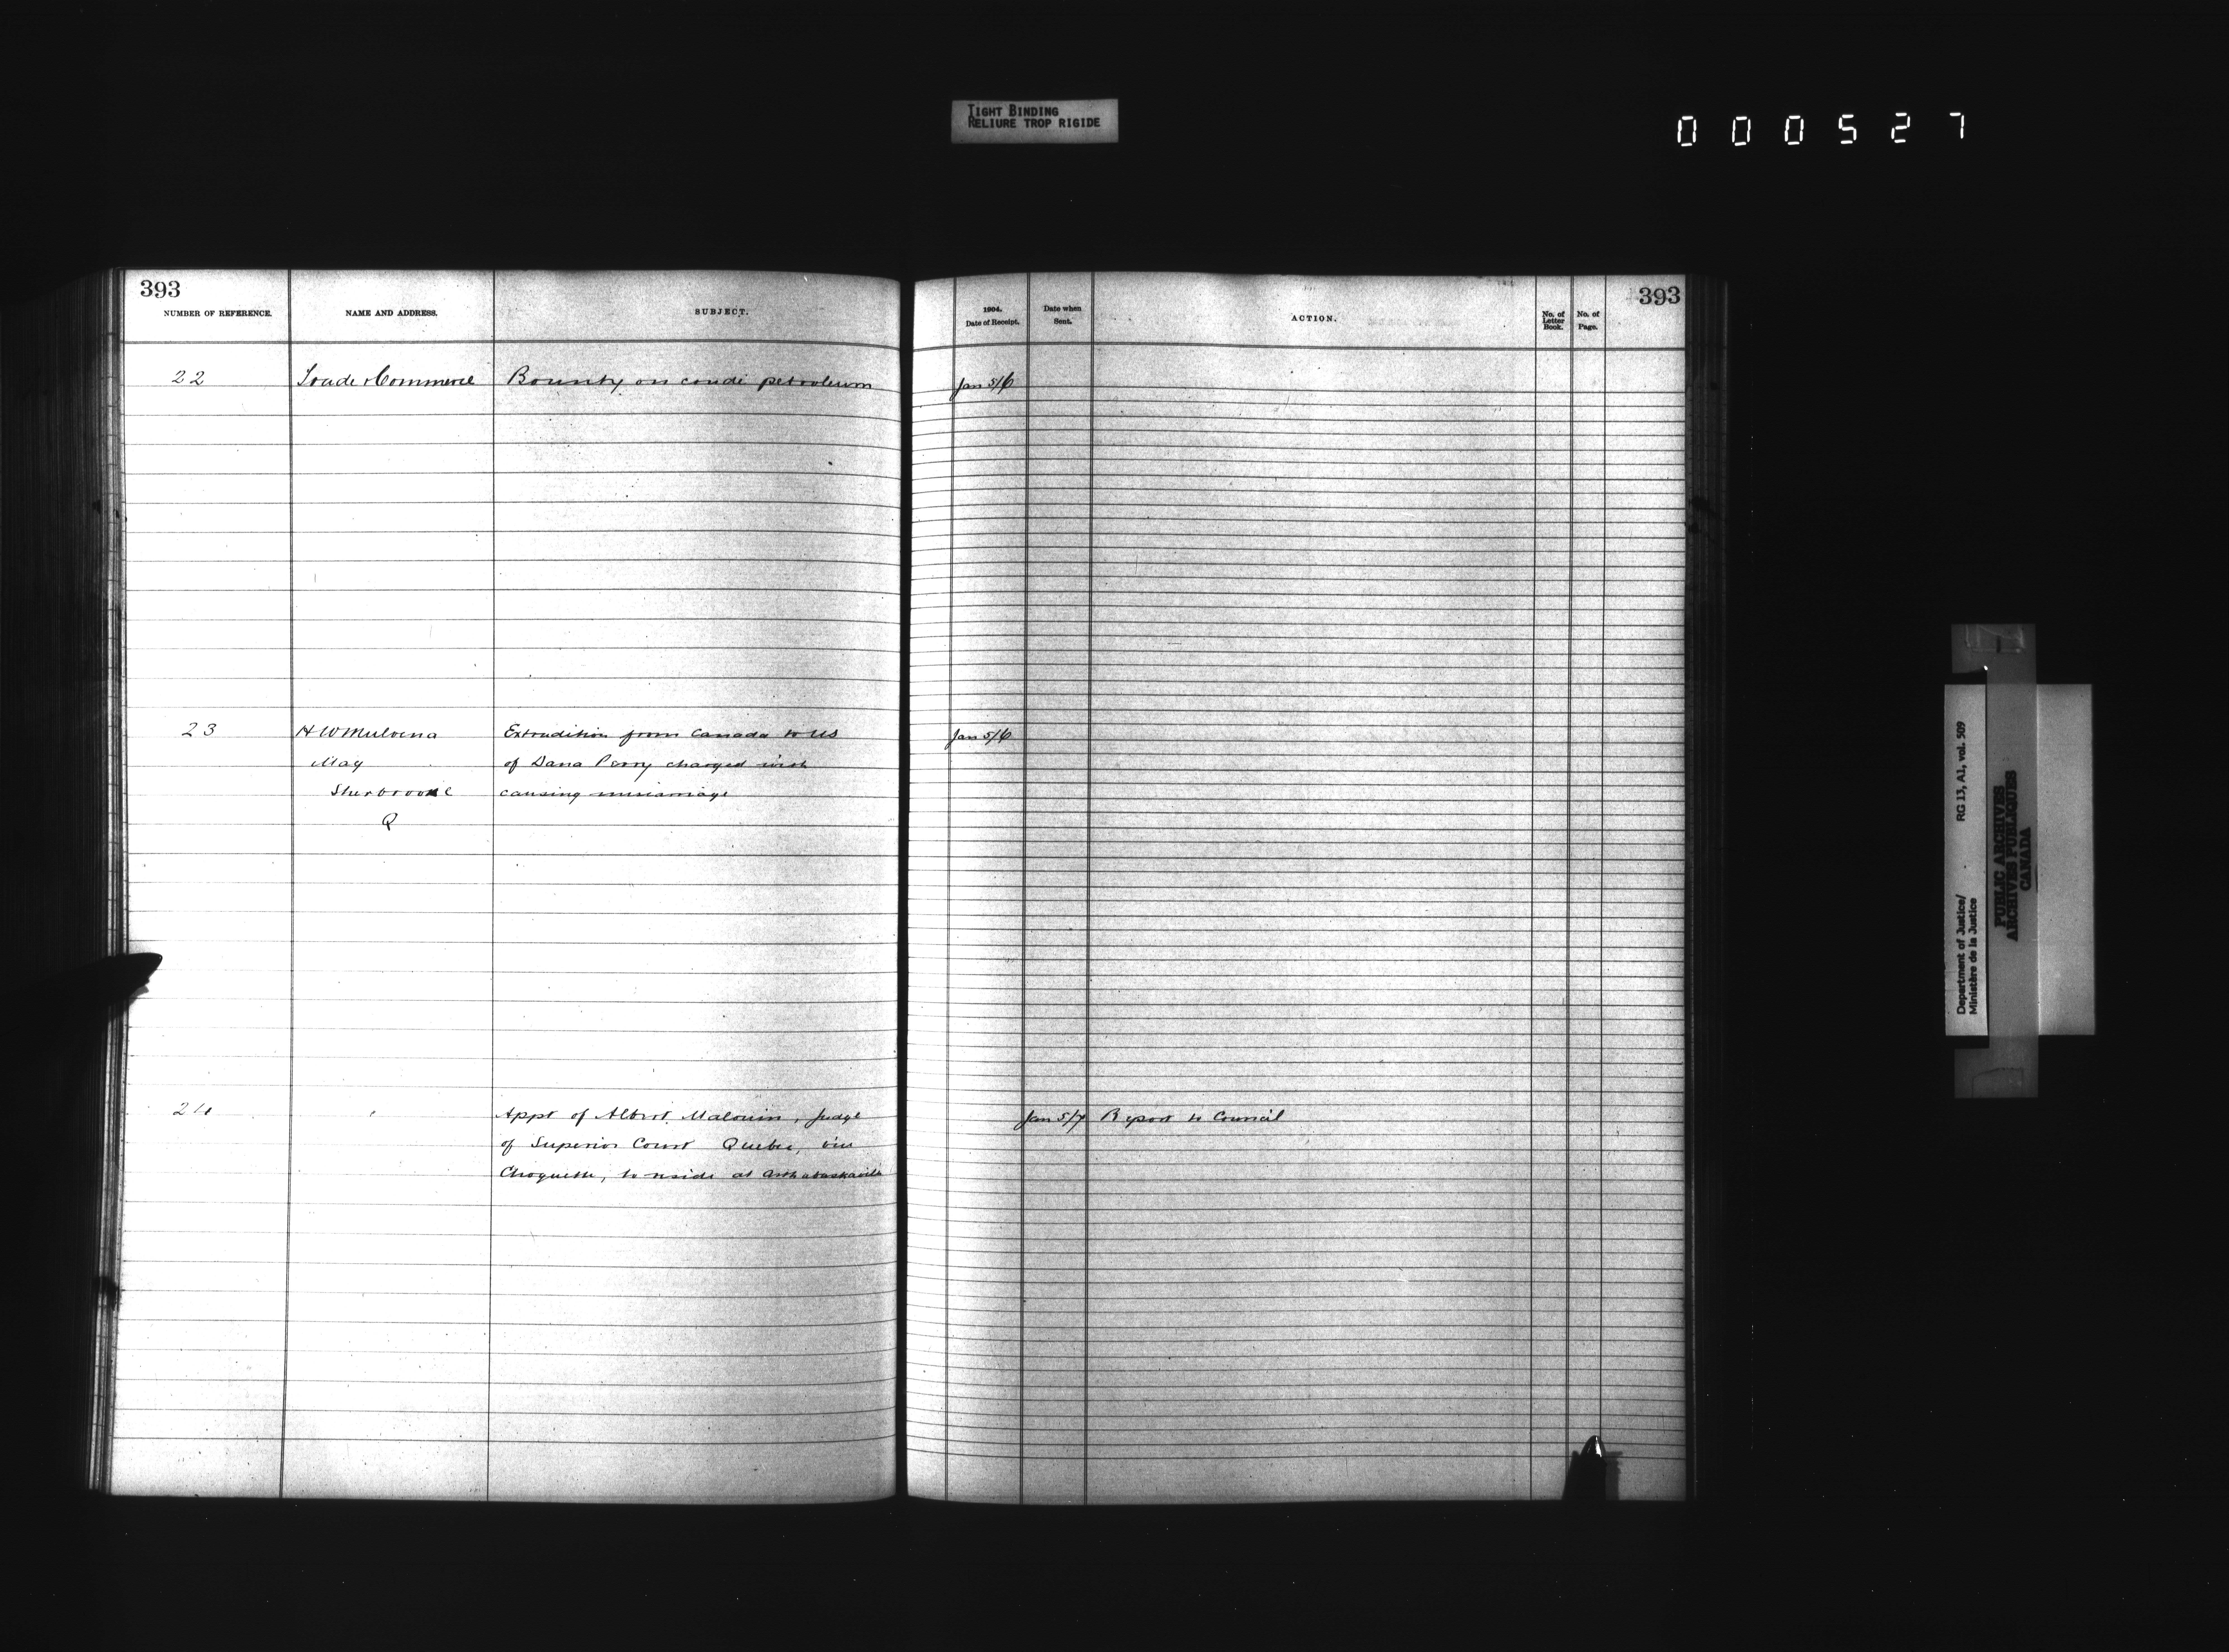 TIGHT BINDING
RELIURE TROP RIGIDE
000527
393
NUMBER OF REFERENCE.
NAME AND ADDRESS.
SUBJECT.
22
Trade & Commerce
Bounty on crude petroleum
23
H W Mulvena
Mag
Sherbrooke
Q
Extradition from Canada to US
of Dana Perry charged with
causing miscarriage
24
Appt of Albert Malouin, Judge
of Superior Court Quebec, vice
Choquette, to reside at Arthabaskaville
1904.
Date of Receipt.
Date when
Sent.
ACTION.
No. of
Letter
Book.
No. of
Page.
393
Jan 5/6
Jan 5/6
Jan 5/7
Report to Council
Department of Justice/
Ministère de la Justice
RG 13, A1, vol. 509
PUBLIC ARCHIVES
ARCHIVES PUBLIQUES
CANADA